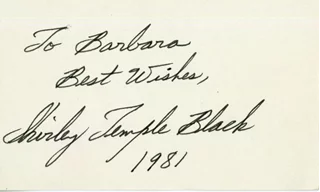 To Barbara
Best Wishes,
Shirley Temple Black
1981